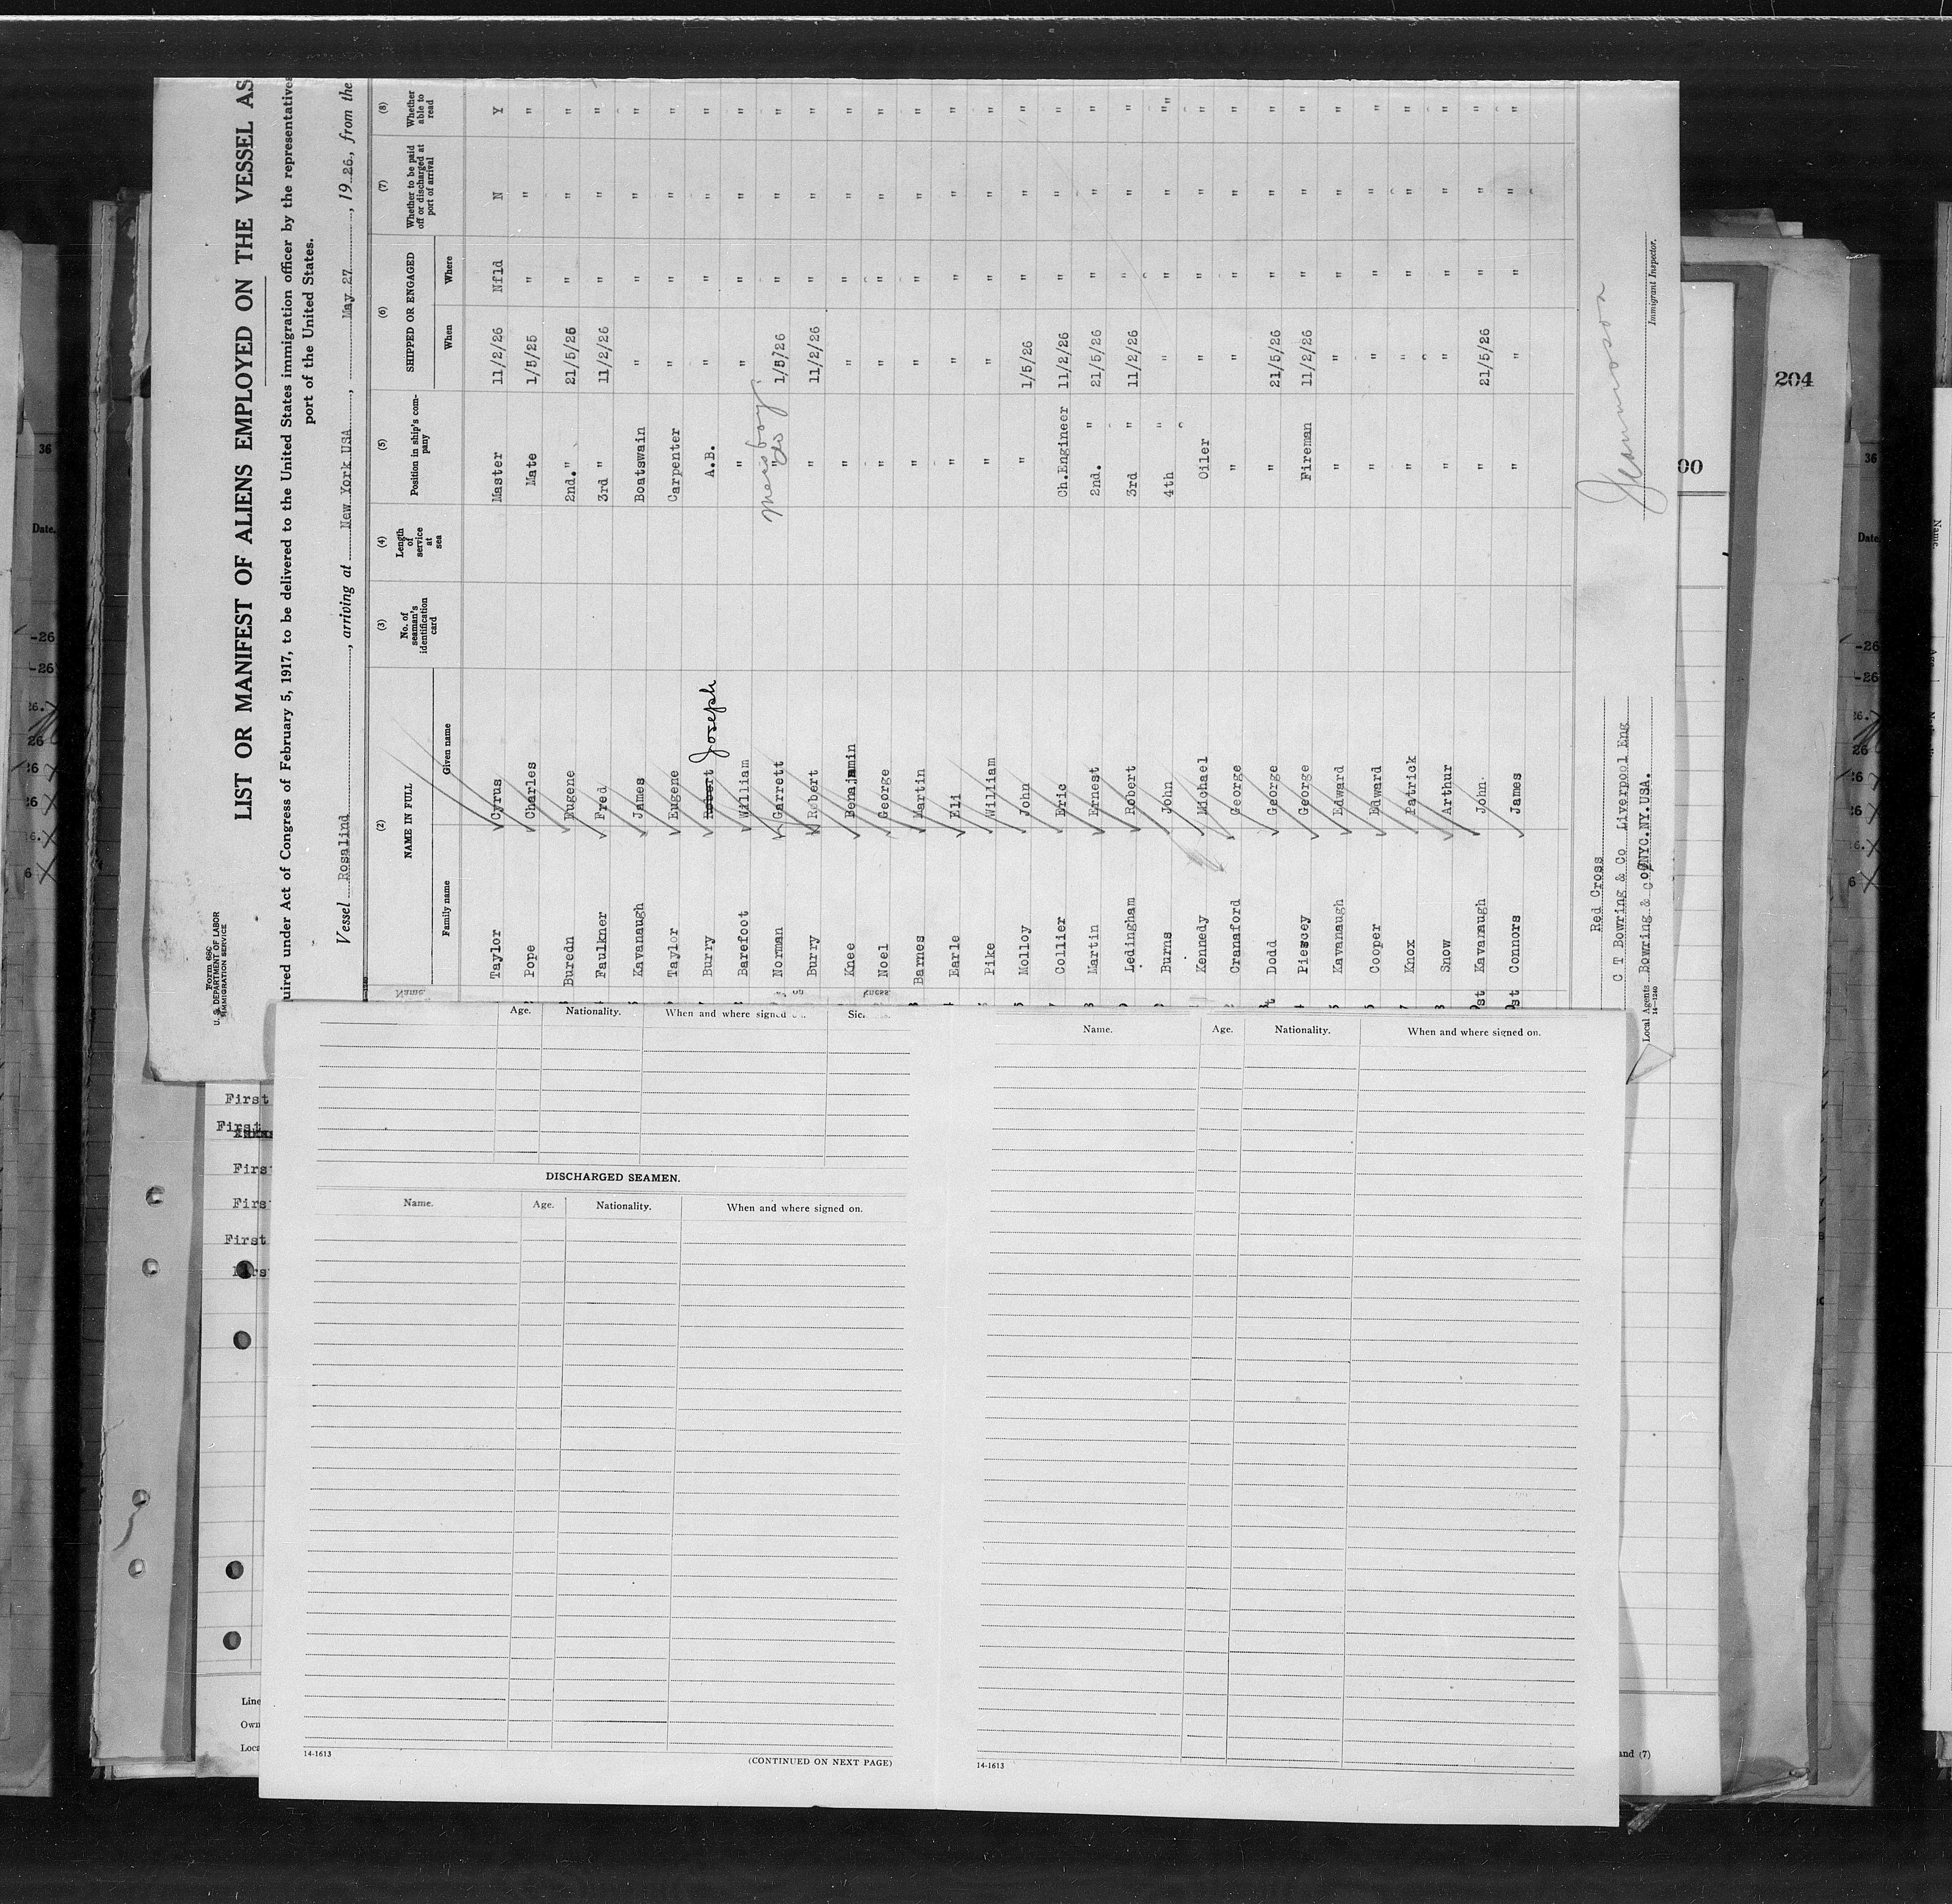 Form 680
U. S. DEPARTMENT OF LABOR
IMMIGRATION SERVICE
LIST OR MANIFEST OF ALIENS EMPLOYED ON THE VESSEL AS
uired under Act of Congress of February 5, 1917, to be delivered to the United States immigration officer by the representative
port of the United States.
Vessel Rosalind, arriving at New York USA, May 27, 1926, from the
(2) (3) (4) (5) (6) (7) (8)
NAME IN FULL No. of seaman's identification card Length of service at sea Position in ship's company SHIPPED OR ENGAGED Whether to be paid off or discharged at port of arrival Whether able to read
Family name Given name When Where
Taylor Cyrus Master 11/2/26 Nfld N Y
Pope Charles Mate 1/5/25 " " "
Buredn Eugene 2nd. " 21/5/26 " " "
Faulkner Fred 3rd " 11/2/26 " " "
Kavanaugh James Boatswain " " " "
Taylor Eugene Carpenter " " " "
Burry Robert Joseph A.B. " " " "
Barefoot William " " " " "
Norman Garrett Mess boy " do 1/5/26 " " "
Burry Robert " 11/2/26 " " "
Knee Benajmin " " " " "
Noel George " " " " "
Barnes Martin " " " " "
Earle Eli " " " " "
Pike William " " " " "
Molloy John " 1/5/26 " " "
Collier Eric Ch.Engineer 11/2/26 " " "
Martin Ernest 2nd. " 21/5/26 " " "
Ledingham Robert 3rd " 11/2/26 " " "
Burns John 4th " " " " "
Kennedy Michael Oiler " " " "
Cranaford George " " " " "
Dodd George " 21/5/26 " " "
Piercey George Fireman 11/2/26 " " "
Kavanaugh Edward " " " " "
Cooper Edward " " " " "
Knox Patrick " " " " "
Snow Arthur " " " " "
Kavanaugh John " 21/5/26 " " "
Connors James " " " " "
Red Cross
C T Bowring & Co Liverpool Eng
Local Agents Bowring & Co NYC.NY.USA.
14-1240
Immigrant Inspector.
204
00
36
Date.
-26
-26
26
36
Date.
-26
-26
26
Name.
First
First
First
First
First
First
Line
Own
Loca
and (7)
Age. Nationality. When and where signed
DISCHARGED SEAMEN.
Name. Age. Nationality. When and where signed on.
14-1613
(CONTINUED ON NEXT PAGE)
Name. Age. Nationality. When and where signed on.
14-1613